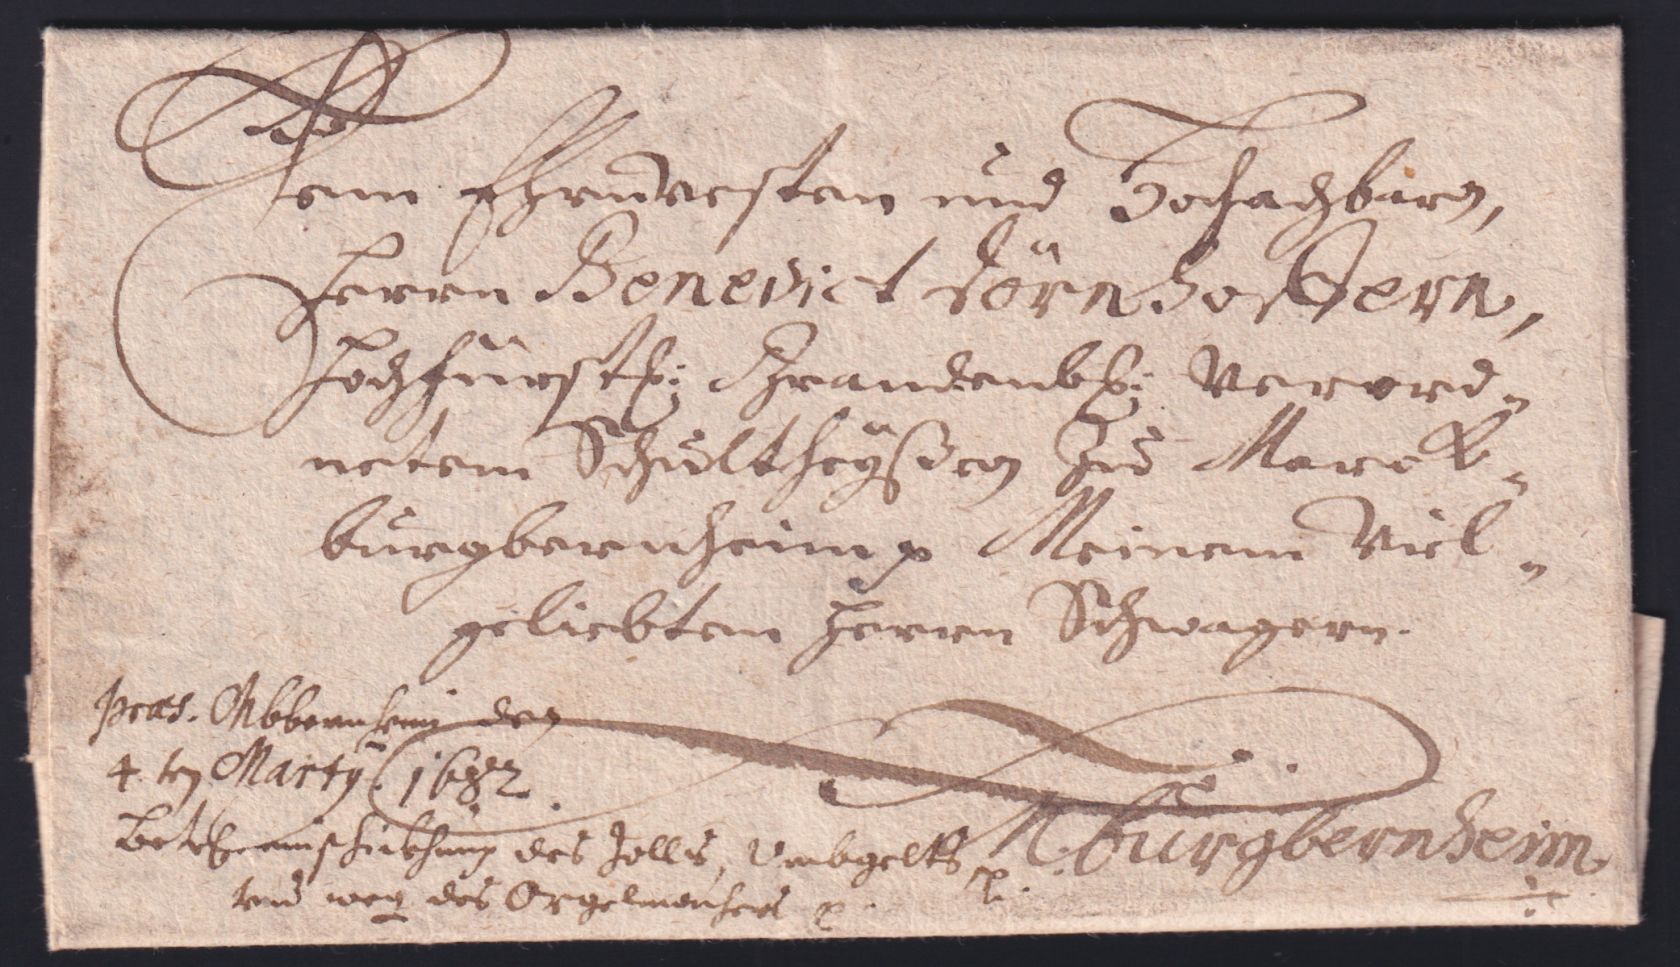 Dem Ehrnvesten und Hochachtbarn,
Herrn Benedict Dörnhöffern,
Hochfürstl: Brandenbl: Verord-
netem Schultheyßen zu Marck-
burgbernheim p Meinem Viel-
geliebtem Herrn Schwagern.
præs. Mbbernheim den
4. ten Martÿ 1682.
Betr. einschickhung des Zolls, Umbgelts p.
vnd weg des Orgelmachers p
M. burgbernheim